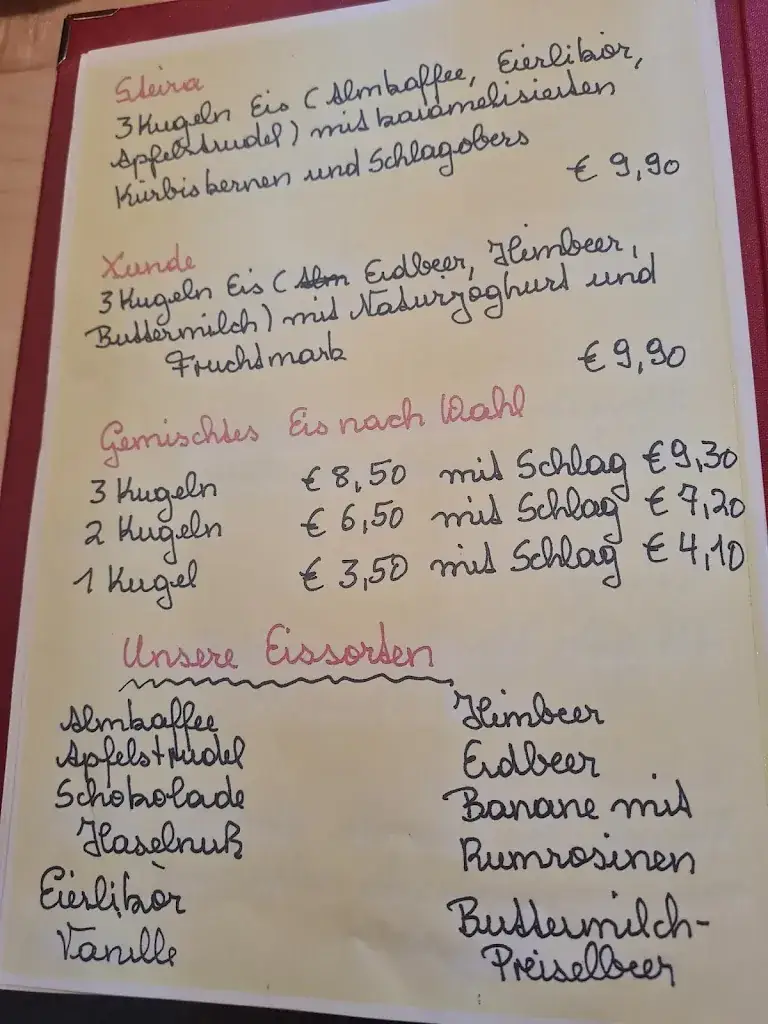 Steira
3 Kugeln Eis (Almkaffee, Eierlikör,
Apfelstrudel) mit karamelisierten
Kürbiskernen und Schlagobers
€ 9,90
Xunde
3 Kugeln Eis (Alm Erdbeer, Himbeer,
Buttermilch) mit Naturjoghurt und
Fruchtmark
€ 9,90
Gemischtes Eis nach Wahl
3 Kugeln € 8,50 mit Schlag € 9,30
2 Kugeln € 6,50 mit Schlag € 7,20
1 Kugel € 3,50 mit Schlag € 4,10
Unsere Eissorten
Almkaffee
Apfelstrudel
Schokolade
Haselnuß
Eierlikör
Vanille
Himbeer
Erdbeer
Banane mit
Rumrosinen
Buttermilch-
Preiselbeer